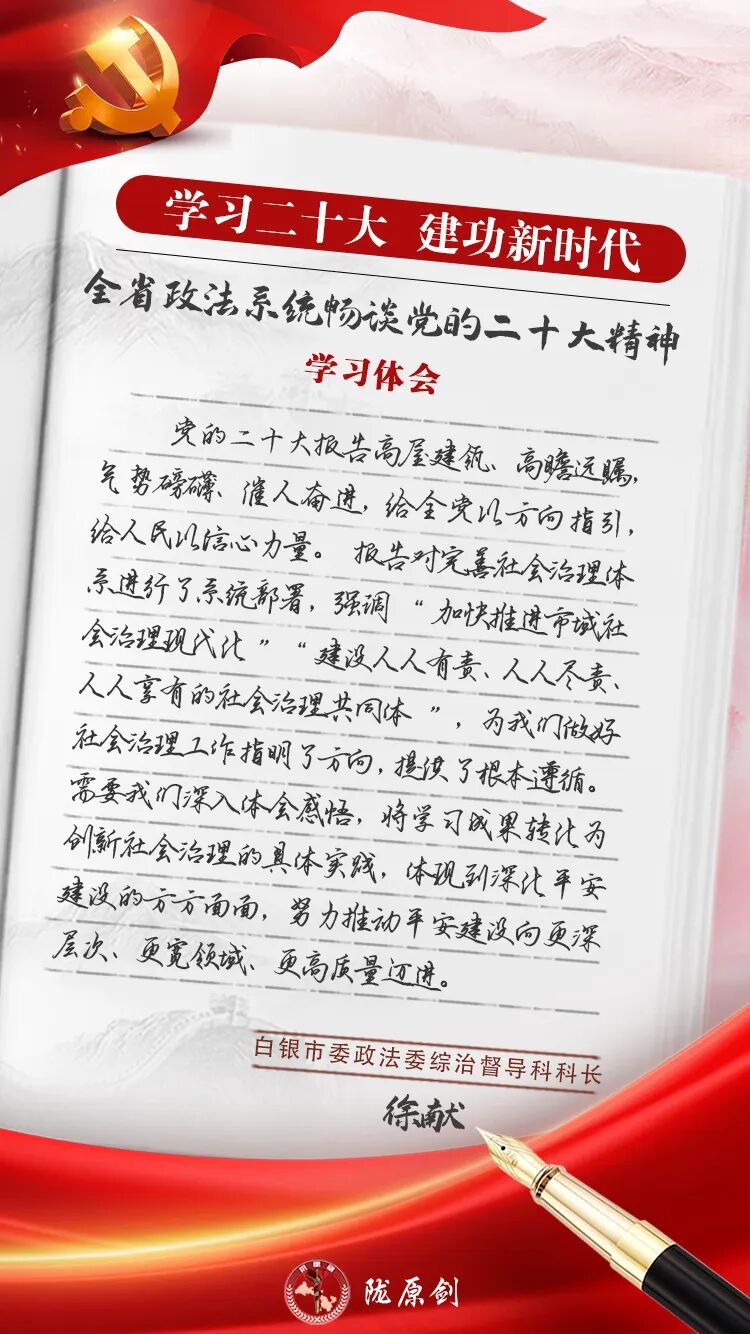 学习二十大 建功新时代
全省政法系统畅谈党的二十大精神
学习体会
党的二十大报告高屋建瓴、高瞻远瞩，
气势磅礴、催人奋进，给全党以方向指引，
给人民以信心力量。报告对完善社会治理体
系进行了系统部署，强调“加快推进市域社
会治理现代化”“建设人人有责、人人尽责、
人人享有的社会治理共同体”，为我们做好
社会治理工作指明了方向，提供了根本遵循。
需要我们深入体会感悟，将学习成果转化为
创新社会治理的具体实践，体现到深化平安
建设的方方面面，努力推动平安建设向更深
层次、更宽领域、更高质量迈进。
白银市委政法委综治督导科科长
徐献
陇原剑